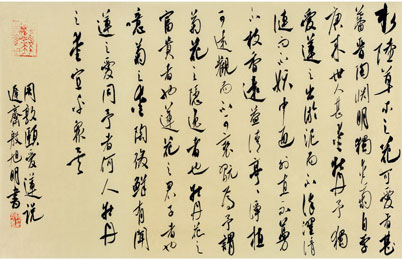 水陸草木之花可愛者甚
蕃晉陶淵明獨愛菊自李
唐來世人甚愛牡丹予獨
愛蓮之出淤泥而不染濯清
漣而不妖中通外直不蔓
不枝香遠益清亭亭淨植
可遠觀而不可褻玩焉予謂
菊花之隱逸者也牡丹花之
富貴者也蓮花之君子者也
噫菊之愛陶後鮮有聞
蓮之愛同予者何人牡丹
之愛宜乎眾矣
周敦頤愛蓮說
齋殷旭明書